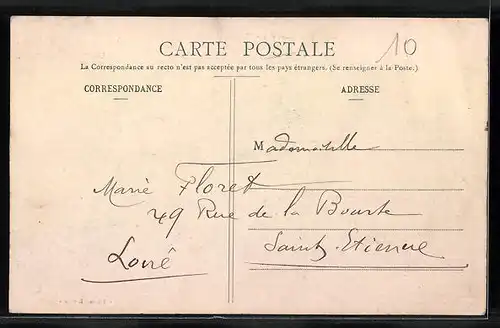 CARTE POSTALE
10
La Correspondance au recto n'est pas acceptée par tous les pays étrangers. (Se renseigner à la Poste.)
CORRESPONDANCE
ADRESSE
Mademoiselle
Marie Floret
49 Rue de la Bourse
Saint-Etienne
Loire